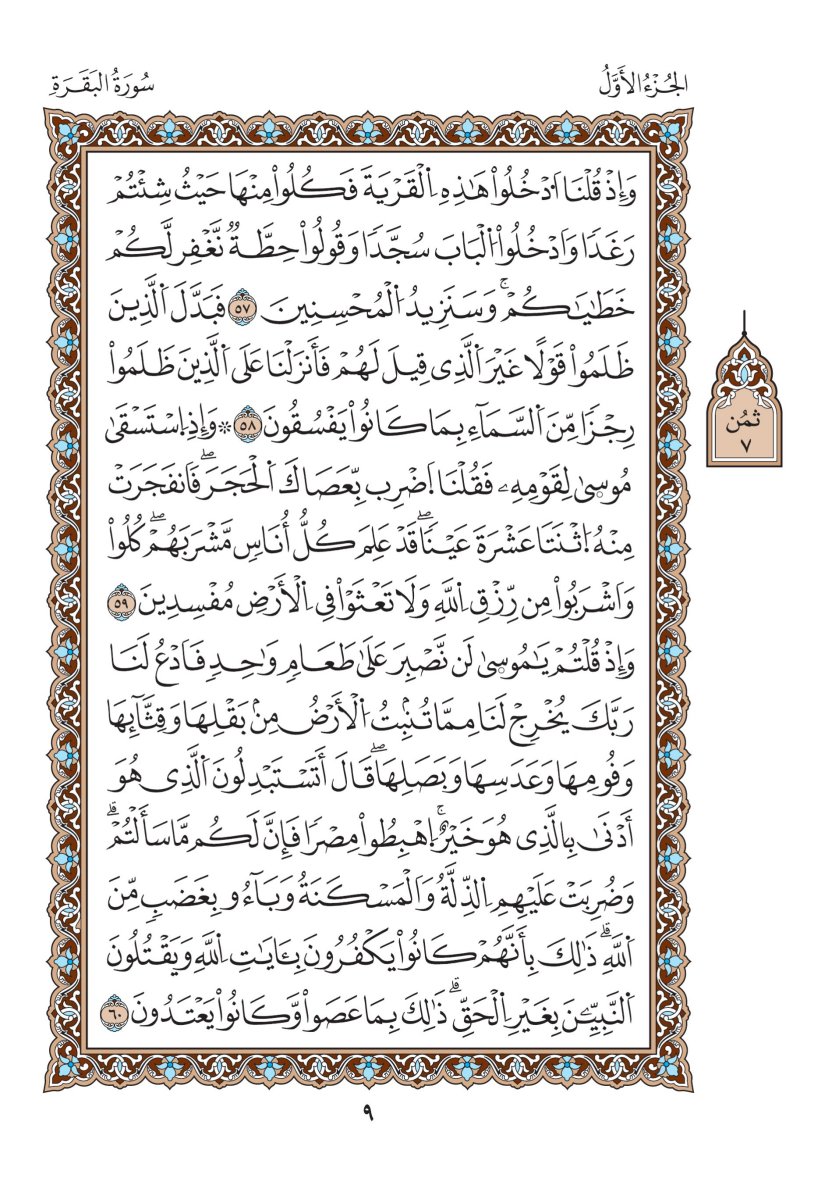 الجُزْءُ الأَوَّلُ
سُورَةُ البَقَرَةِ
وَإِذْ قُلْنَا اَ۟دْخُلُواْ هَٰذِهِ اِ۬لْقَرْيَةَ فَكُلُواْ مِنْهَا حَيْثُ شِئْتُمْ
رَغَدٗا وَادْخُلُواْ اُ۬لْبَابَ سُجَّدٗا وَقُولُواْ حِطَّةٞ نَّغْفِر لَّكُمْ
خَطَٰيَٰكُمْۚ وَسَنَزِيدُ اُ۬لْمُحْسِنِينَ ٥٧ فَبَدَّلَ اَ۬لَّذِينَ
ظَلَمُواْ قَوْلًا غَيْرَ اَ۬لَّذِي قِيلَ لَهُمْ فَأَنزَلْنَا عَلَى اَ۬لَّذِينَ ظَلَمُواْ
رِجْزٗا مِّنَ اَ۬لسَّمَآءِ بِمَا كَانُواْ يَفْسُقُونَ ٥٨ ۞وَإِذِ اِ۪سْتَسْقَىٰ
مُوسۭىٰ لِقَوْمِهِۦ فَقُلْنَا اَ۪ضْرِب بِّعَصَاكَ اَ۬لْحَجَرَۖ فَانفَجَرَتْ
مِنْهُ اُ۪ثْنَتَا عَشْرَةَ عَيْنٗاۖ قَدْ عَلِمَ كُلُّ أُنَاسٖ مَّشْرَبَهُمْۖ كُلُواْ
وَاشْرَبُواْ مِن رِّزْقِ اِ۬للَّهِ وَلَا تَعْثَوْاْ فِي اِ۬لْأَرْضِ مُفْسِدِينَ ٥٩
وَإِذْ قُلْتُمْ يَٰمُوسۭىٰ لَن نَّصْبِرَ عَلَىٰ طَعَامٖ وَٰحِدٖ فَادْعُ لَنَا
رَبَّكَ يُخْرِجْ لَنَا مِمَّا تُنۢبِتُ اُ۬لْأَرْضُ مِنۢ بَقْلِهَا وَقِثَّآئِهَا
وَفُومِهَا وَعَدَسِهَا وَبَصَلِهَاۖ قَالَ أَتَسْتَبْدِلُونَ اَ۬لَّذِي هُوَ
أَدْنَىٰ بِالَّذِي هُوَ خَيْرٌۚ اِ۪هْبِطُواْ مِصْرٗا فَإِنَّ لَكُم مَّا سَأَلْتُمْۗ
وَضُرِبَتْ عَلَيْهِمِ اِ۬لذِّلَّةُ وَالْمَسْكَنَةُ وَبَآءُو بِغَضَبٖ مِّنَ
اَ۬للَّهِۗ ذَٰلِكَ بِأَنَّهُمْ كَانُواْ يَكْفُرُونَ بِـَٔايَٰتِ اِ۬للَّهِ وَيَقْتُلُونَ
اَ۬لنَّبِيِّـۧنَ بِغَيْرِ اِ۬لْحَقِّۗ ذَٰلِكَ بِمَا عَصَواْ وَّكَانُواْ يَعْتَدُونَ ٦٠
ثُمُن
٧
٩